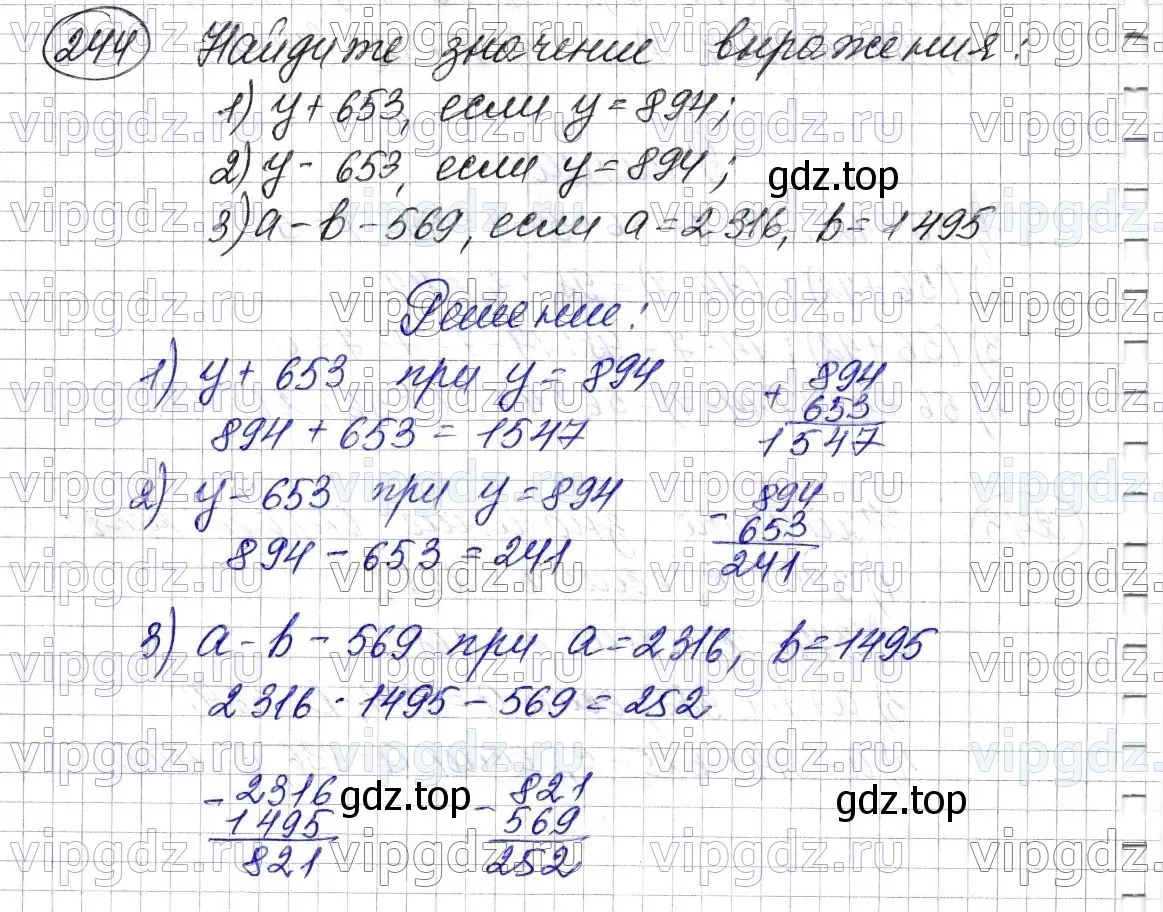 244 Найдите значение выражения:
1) y + 653, если y = 894;
2) y - 653, если y = 894;
gdz.top
3) a - b - 569, если a = 2 316, b = 1 495
Решение:
1) y + 653 при y = 894
894 + 653 = 1547
+ 894
653
1547
2) y - 653 при y = 894
894 - 653 = 241
- 894
653
241
3) a - b - 569 при a = 2316, b = 1495
2316 · 1495 - 569 = 252
- 2316
1495
821
- 821
569
252
gdz.top
gdz.top
vipgdz.ru